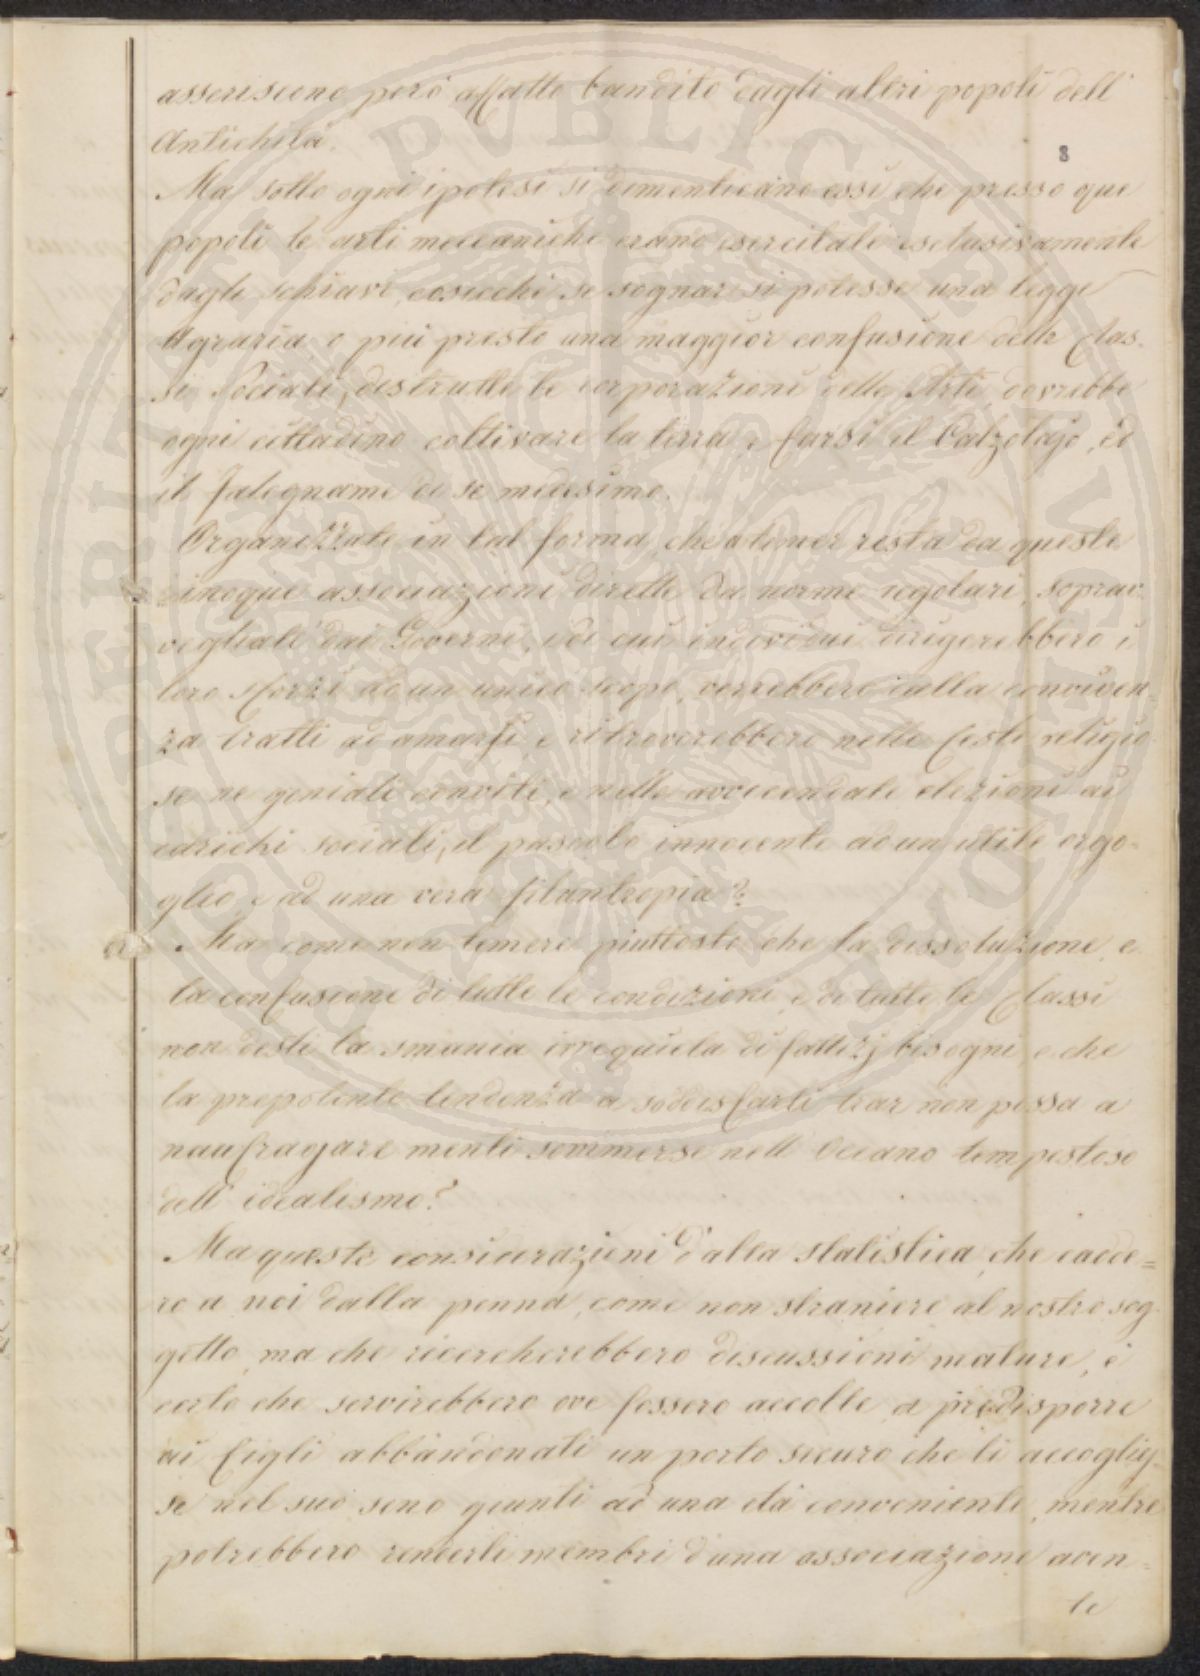 asserisione però affatto bandito dagli altri popoli dell'
Antichità.
8
Ma sotto ogni ipotesi si dimenticano essi che presso que'
popoli le arti meccaniche erano esercitate esclusivamente
dagli schiavi, cosicchè se sognar si potesse una legge
Agraria, o più presto una maggior confusione delle Clas-
si Sociali, distrutte le corporazioni delle Arti, dovrebbe
ogni cittadino coltivare la terra, e farsi il Calzolajo, ed
il Falegname di se medesimo.
Organizzate in tal forma, che a temer resta da queste
cinque associazioni dirette da norme regolari, soprav-
vegliate dai Governi, i di cui individui dirigerebbero i
loro sforzi ad un unico scopo, verrebbero dalla conviven-
za tratti ad amarsi, e ritroverebbero nelle feste religio-
se ne' geniali conviti, e nelle avvicendate elezioni ai
carichi sociali, il pascolo innocente ad un utile orgo-
glio, e ad una vera filantropia?
Ma come non temere piuttosto che la dissoluzione, e
la confusione di tutte le condizioni, e di tutte le Classi
non desti la smania irrequieta di fattizj bisogni, e che
la prepotente tendenza a soddisfarli trar non possa a
naufragare menti sommerse nell'Oceano tempestoso
dell'idealismo?
Ma queste considerazioni d'alta statistica, che cadde-
ro a noi dalla penna, come non straniere al nostro sog-
getto, ma che ricercherebbero discussioni mature, è
certo che servirebbero ove fossero accolte, a predisporre
ai figli abbandonati un porto sicuro che li accoglies-
se nel suo seno giunti ad una età conveniente, mentre
potrebbero renderli membri d'una associazione aven-
te